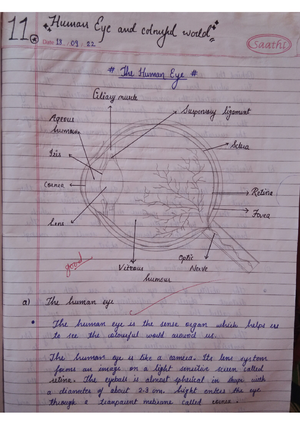 11
Human Eye and colourful world
Date 13 / 09 / 22
Saathi
# The Human Eye #
Ciliary muscle
Suspensory ligament
Aqeous humour
Sclera
Iris
Cornea
Retina
Fovea
Lens
good
Vitrous humour
Optic Nerve
a) The human eye
The human eye is the sense organ which helps us
to see the colourful world around us.
The human eye is like a camera. Its lens system
forms an image on a light sensitive screen called
retina. The eyeball is almost spherical in shape with
a diameter of about 2.3 cm. Light enters the eye
through a transparent membrane called cornea.